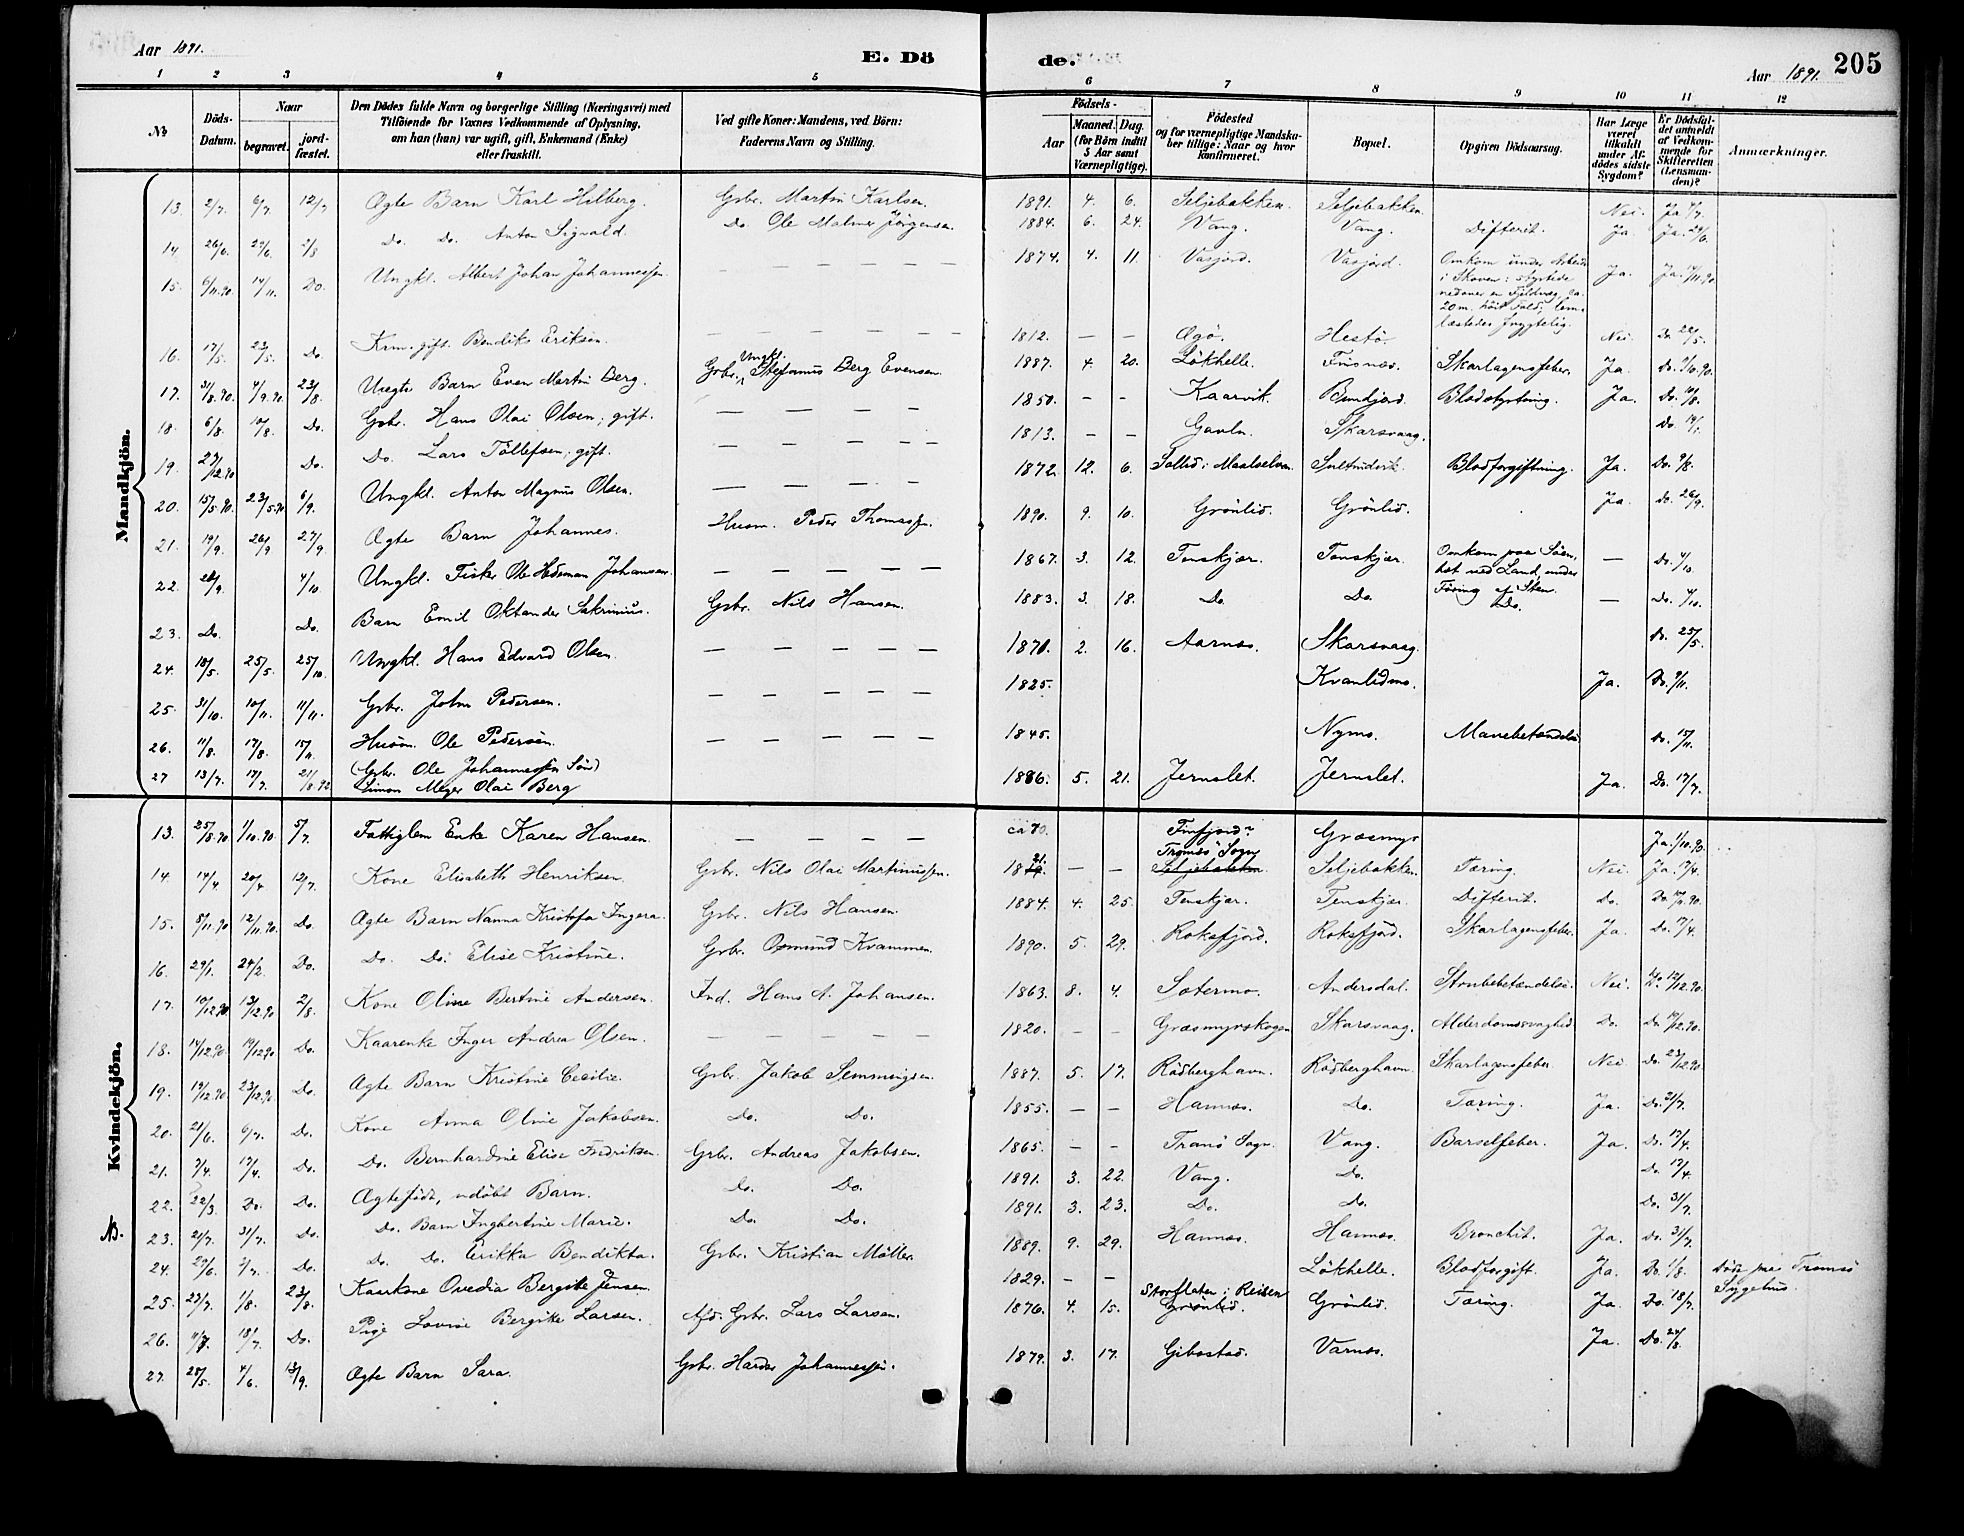 Aar 1891. E. Dö
de. Aar 1891. 205
1 2 3 4 5 6 7 8 9 10 11 12
№ Döds-Datum. Naar begravet. jord-fæstet. Den Dödes fulde Navn og borgerlige Stilling (Næringsvei) med Tilföiende for Voxnes Vedkommende af Oplysning, om han (hun) var ugift, gift, Enkemand (Enke) eller fraskilt. Ved gifte Koner: Mandens, ved Börn: Faderens Navn og Stilling. Födsels- Aar Maaned. Dag. (for Börn indtil 5 Aar samt Værnepligtige). Födested og for værnepligtige Mandska-ber tillige: Naar og hvor konfirmeret. Bopæl. Opgiven Dödsaarsag. Har Læge været tilkaldt under Af-dödes sidste Sygdom? Er Dödsfal-det anmeldt af Vedkom-mende for Skifteretten (Lensman-den)? Anmærkninger.
Mandkjön.
13. 2/7. 6/7. 12/7 Ægte Barn Karl Hilberg. Gbr. Martin Karlsen. 1891. 4. 6. Seljebakken. Seljebakken. Nei. Ja
14. 26/6. 29/6. 2/8 Do. Do. Anton Sigvald. Do. Ole Malmer Jörgensen. 1884. 6. 24. Vang. Vang. Difterit. Ja. Ja. 29/6.
15. 6/11.90 14/11. Do. Ungkl. Albert Johan Johannessen — — — — — 1874. 4. 11. Vasjord. Vasjord. Omkom under Arbeide i Skoven: styrtede nedover en Fjeldvæg, ca. 20 m. höit Fald; lem-læstedes frygtelig. Ja. Ja. 14/11.90
16. 17/5. 23/5. Do. Krm. gift. Bendiks Eriksen. — — — — — 1812. — — Ægö. Hestö. Nei. Do. 22/5.
17. 31/8.90. 4/9.90 23/8. Uægte Barn Even Martin Berg. Gbr. Ungkl. Stefanus Berg Evensen. 1887. 4. 20. Lökhelle. Finsnæs. Skarlagensfeber. Ja. Do.
18. 6/8. 10/8. Do. Gbr. Hans Olai Olsen, gift. — — — — 1850. — — Kaarvik. Bundjord. Blodstyrtning. Ja. Do. 10/8.
19. 27/12.90 Do. Do. Lars Tollefsen, gift. — — — — 1813. — — Gavln. Skarsvaag. Do.
20. 15/5.90. 23/5.90 6/9. Ungkl. Anton Magnus Olsen. — — — — 1872. 12. 6. Sollid i Maalselven. Blodforgiftning. Ja. Do. 9/8.
21. 19/9. 26/9 27/9. Ægte Barn Johannes. Husm. Peder Thomassen. 1890. 9. 10. Grönlid. Grönlid. Ja. Do. 26/9.
22. 22/9. 4/10. Ungkl. Fisker Ole Hedeman Johansen. — — — — — 1867. 3. 12. Tenskjær. Tenskjær. Omkom paa Söen, tæt ved Land, under Föring af Sten. — Do. 4/10.
23. Do. Do. Barn Emil Oktander Sakrinius. Gbr. Nils Hansen. 1883. 3. 18. Do. Do. Do. — Do. 4/10.
24. 18/5. 25/5. 25/10. Ungkl. Hans Edvard Olsen — — — — — 1870. 2. 16. Aarnæs. Skarsvaag. Do. 25/5.
25. 31/10. 10/11. 11/11. Gbr. John Pedersen. — — — — — 1825. Kvanlidmo. Ja. Do. 9/11.
26. 11/8. 17/8. 15/11. Husm. Ole Pedersen. — — — — — 1845. Nymo. Mavebetændelse Do. 15/11.
27 13/7. 17/7. 21/8.92 (Gbr. Ole Johannessen Sön) Simon Meyer Olai Berg 1886. 5. 21. Jernslet. Jernslet. Ja. Do. 17/7.
Kvindekjön.
13. 25/8.90 1/10.90. 5/7. Fattiglem Enke Karen Hansen. — — — — ca 70. Finfjord? Græsmyr Ja. 1/10.90.
14. 14/4. 20/4. 12/7. Kone Elisabeth Henriksen. Gbr. Nils Olai Martinussen. 1821. — — Tromsö Sogn Seljebakken Seljebakken. Tæring. Nei. Ja. 17/4.
15. 5/11.90 12/11.90. Do. Ægte Barn Nanna Kristofa Ingera. Gbr. Nils Hansen. 1884. 4. 25. Tenskjær. Tenskjær. Difterit. Do. Do.
16. 29/1. 24/2. Do. Do. Do. Elise Kristine. Gbr. Osmund Kvammen. 1890. 5. 29. Roksfjord. Roksfjord. Skarlagensfeber. Ja. Do. 17/4.
17. 10/12.90. 13/12.90 2/8. Kone Oline Bertine Andersen. Ind. Hans A. Johansen. 1863. 8. 4. Sætermo. Andersdal. Strubebetændelse. Nei. Do. 12/12.90.
18. 14/12.90. 19/12.90 Do. Kaarenke Inger Andrea Olsen. — — — — — 1820. — — Græsmyrskogen Skarsvaag. Alderdomssvaghed Do. Do. 19/12.90.
19. 19/12.90 23/12.90 Do. Ægte Barn Kristine Cecilie. Gbr. Jakob Semmingsen. 1887. 5. 17. Rödberghavn. Rödberghavn. Skarlagensfeber. Nei. Do. 23/12.90
20. 21/6. 6/7. Do. Kone Anna Oline Jakobsen. Do. Do. 1855. — — Hannæs. Do. Tæring. Ja. Do. 21/7.
21. 7/4. 17/4. Do. Do. Bernhardine Elise Fredriksen. Gbr. Andreas Jakobsen. 1865. — — Tranö Sogn. Vang. Barselfeber. Ja. Do. 17/4.
22. 22/3. Do. Do. Ægtefödt, udöbt Barn. Do. Do. 1891. 3. 22. Vang. Do. Do. 17/4.
№. 23. 21/7. 31/7. Do. Do. Barn Ingbertine Marie. Do. Do. 1891. 3. 23. Do. Do. Do. 31/7.
24. 29/6. 2/7. Do. Do. Do. Erikka Bendikta. Gbr. Kristian Möller 1889. 9. 29. Hannæs. Hannæs. Bronchit. Ja. Do. 31/7.
25. 23/7. 1/8. 23/8. Kaarkone Ovedia Bergitte Jensen. 1829. — — Storslaten i Reisen Lökhelle. Blodforgift. Ja. Do. 1/8. Döde paa Tromsö Sygehus.
26. 11/7. 18/7. Do. Pige Lovise Bergitte Larsen. Afd. Gbr. Lars Larsen. 1876. 4. 15. Grönlid. Grönlid. Tæring. Ja. Do. 18/7.
27. 28/5. 4/6. 13/9. Ægte Barn Sara. Gbr. Harder Johannessen. 1879. 3. 17. Gibostad. Varnæs. Ja. Do.